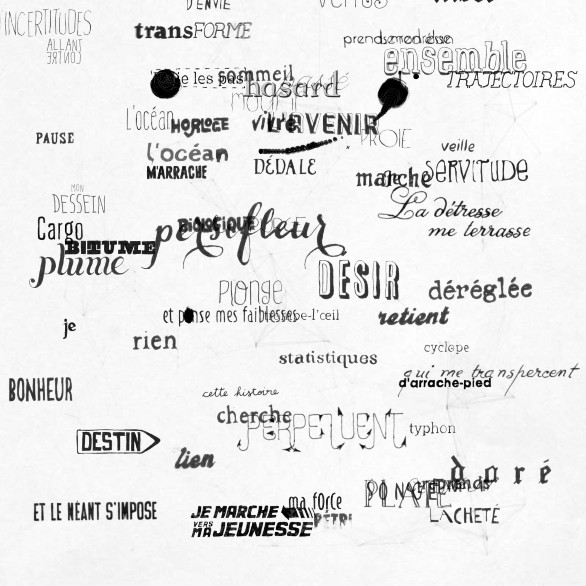 D'ENVIE
INCERTITUDES
ALLANT
CONTRE
transFORME
ensemble
TRAJECTOIRES
sommeil
hasard
L'océan
HORLOGE
L'AVENIR
PROIE
PAUSE
l'océan
M'ARRACHE
DÉDALE
veille
marche
SERVITUDE
MON
DESSEIN
La détresse
me terrasse
Cargo
BITUME
persifleur
BIOLOGIQUE
plume
PLONGE
DESIR
déréglée
et panse mes faiblesses
retient
je
rien
statistiques
cyclope
qui me transpercent
d'arrache-pied
BONHEUR
cette histoire
cherche
PERPETUENT
typhon
DESTIN
lien
doré
PLAGE
ma force
ET LE NÉANT S'IMPOSE
JE MARCHE
VERS
MA JEUNESSE
LACHETÉ